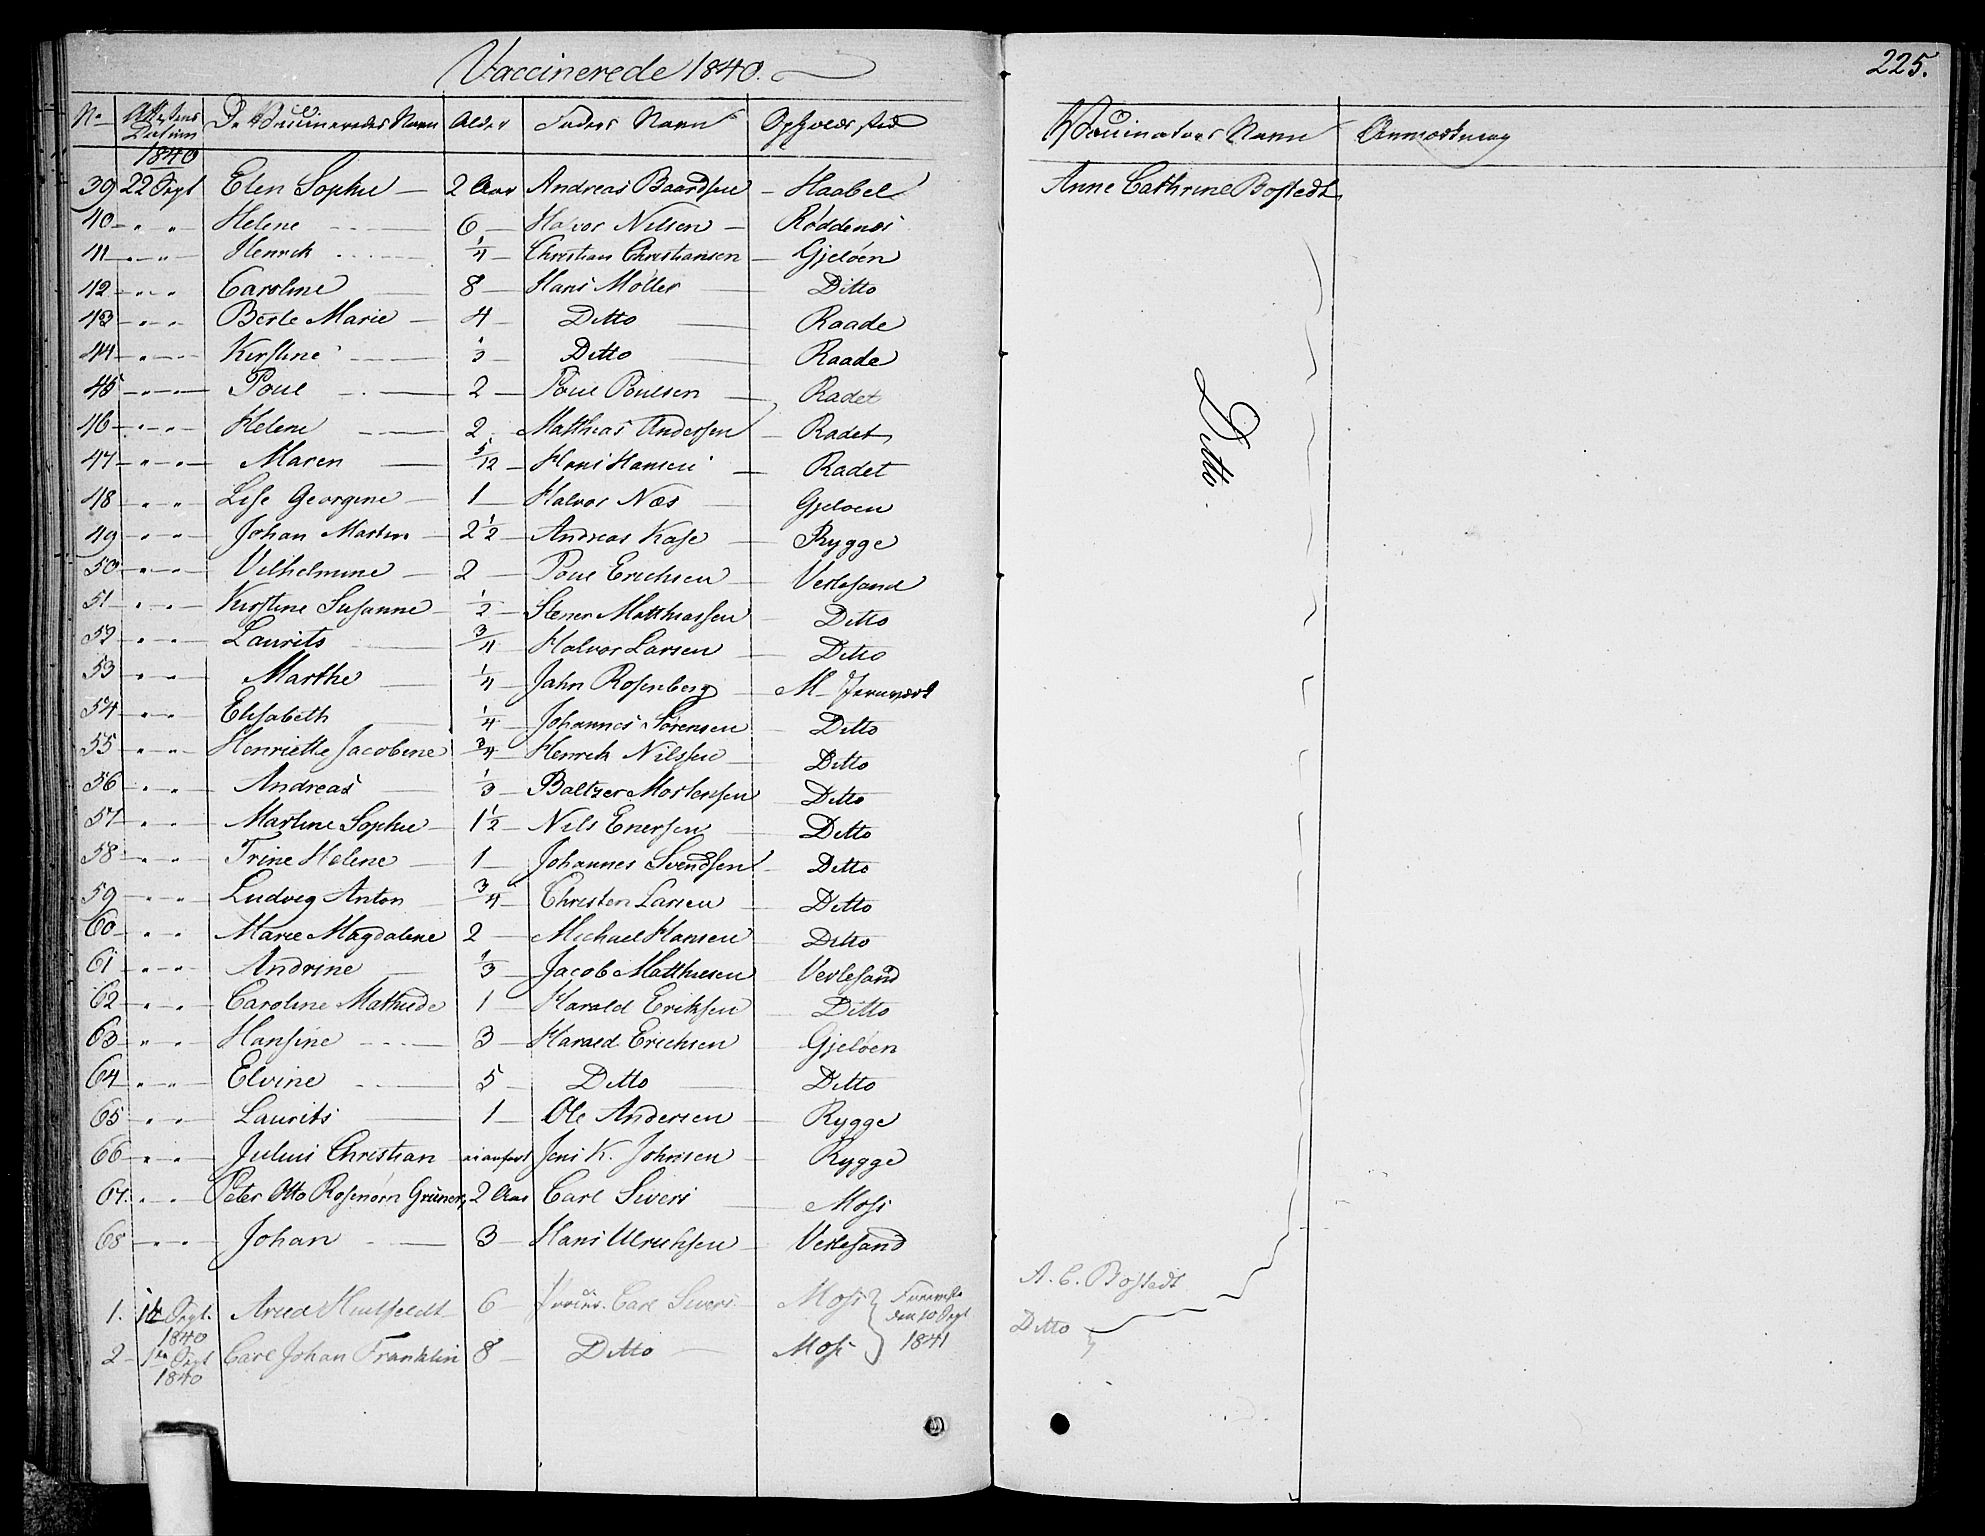 Vaccinerede 1840.
225.
No Attestens Datum De Vaccineredes Navn Alder Faders Navn Opholds sted Vaccinators Navn Anmærkning
1840
39 22 Sept Elen Sophie — 2 Aar Andreas Baardsen — Haabel Anne Cathrine Bostedt
40 — " " Helene — 6 — Halvor Nilsen — Røddenes
41 — " " Henrik — 1/4 — Christian Christiansen — Gjeløen
42 — " " Caroline 8 — Hans Møller — Ditto
43 — " " Berte Marie — 4 — Ditto — Raade
44 — " " Kirstine — 1/3 — Ditto — Raade
45 — " " Poul — 2 — Poul Poulsen — Radet
Ditto.
46 — " " Helene — 2 Matthias Andersen — Radet
47 — " " Maren — 5/12 — Hans Hansen — Radet
48 — " " Lise Georgine — 1 — Halvor Næs — Gjeloen
49 — " " Johan Martin — 2 1/2 — Andreas Kase — Rygge
50 — " " Vilhelmine — 2 — Poul Erichsen — Verlesand
51 — " " Kirstine Susanne — 1/2 — Stener Matthiassen — Ditto
52 — " " Laurits — 3/4 — Halvor Larsen — Ditto
53 — " " Marthe — 1/4 — Jahn Rosenberg — M— Jernværk
54 — " " Elisabeth 1/4 — Johannes Sørensen — Ditto
55 — " " Henriette Jacobine 3/4 — Henrik Nilssen — Ditto
56 — " " Andreas — 1/3 — Baltzer Mortensen — Ditto
57 — " " Martine Sophie — 1 1/2 — Nils Enersen — Ditto
58 — " " Trine Helene — 1 — Johannes Svendsen — Ditto
59 — " " Ludvig Anton — 3/4 — Christen Larsen — Ditto
60 — " " Marie Magdalene 2 — Michael Hansen — Ditto
61 — " " Andrine — 1/3 — Jacob Matthiesen — Verlesand
62 — " " Caroline Mathilde 1 — Harald Eriksen — Ditto
63 — " " Hansine — 3 — Harald Erichsen — Gjeløen
64 — " " Elvine — 5 — Ditto — Ditto
65 — " " Laurits — 1 — Ole Andersen — Rygge
66 — " " Julius Christian ei anført Jens K. Johnsen — Rygge
67. " " Peter Otto Rosenørn Grüner, 2 Aar Carl Sivers — Moss
68 — " " Johan — 3 — Hans Ulrichsen — Verlesand
1. 1ste Sept. 1840 Arild Huitfeldt 6 — Carl Sivers — Moss A. C. Bostedt
den 10 Sept 1841
2 — 1ste Sept 1840 Carl Johan Franklin 8 — Ditto — Moss Ditto